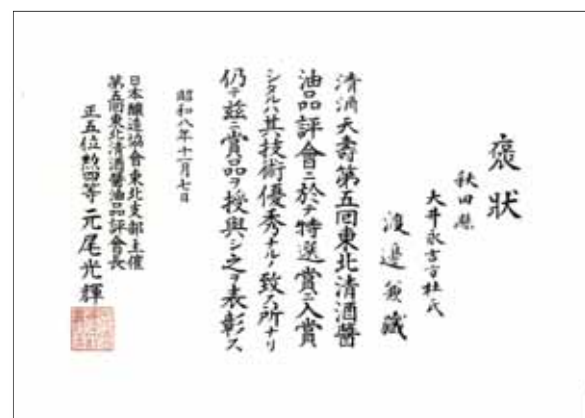 褒状
秋田縣
大井永吉方杜氏
渡邉
清酒天壽第五回東北清酒醬
油品評會ニ於テ特選賞ニ入賞
シタルハ其技術優秀ナルノ致ス所ナリ
仍テ茲ニ賞品ヲ授與シ之ヲ表彰ス
昭和八年十一月七日
日本醸造協會東北支部主催
第五回東北清酒醬油品評會長
正五位勲四等元尾光輝